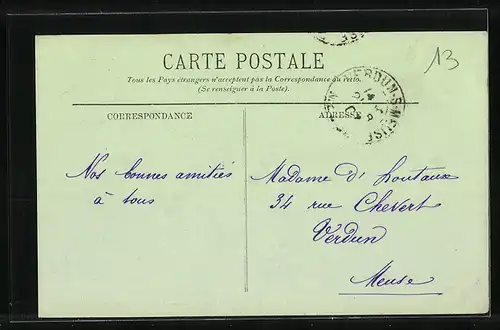 CARTE POSTALE
13
Tous les Pays étrangers n'acceptent pas la Correspondance au recto.
(Se renseigner à la Poste).
VERDUN-S-MEUSE
14
CORRESPONDANCE
ADRESSE
Nos bonnes amitiés
à tous
Madame d' Loutaux
34 rue Chevert
Verdun
Meuse